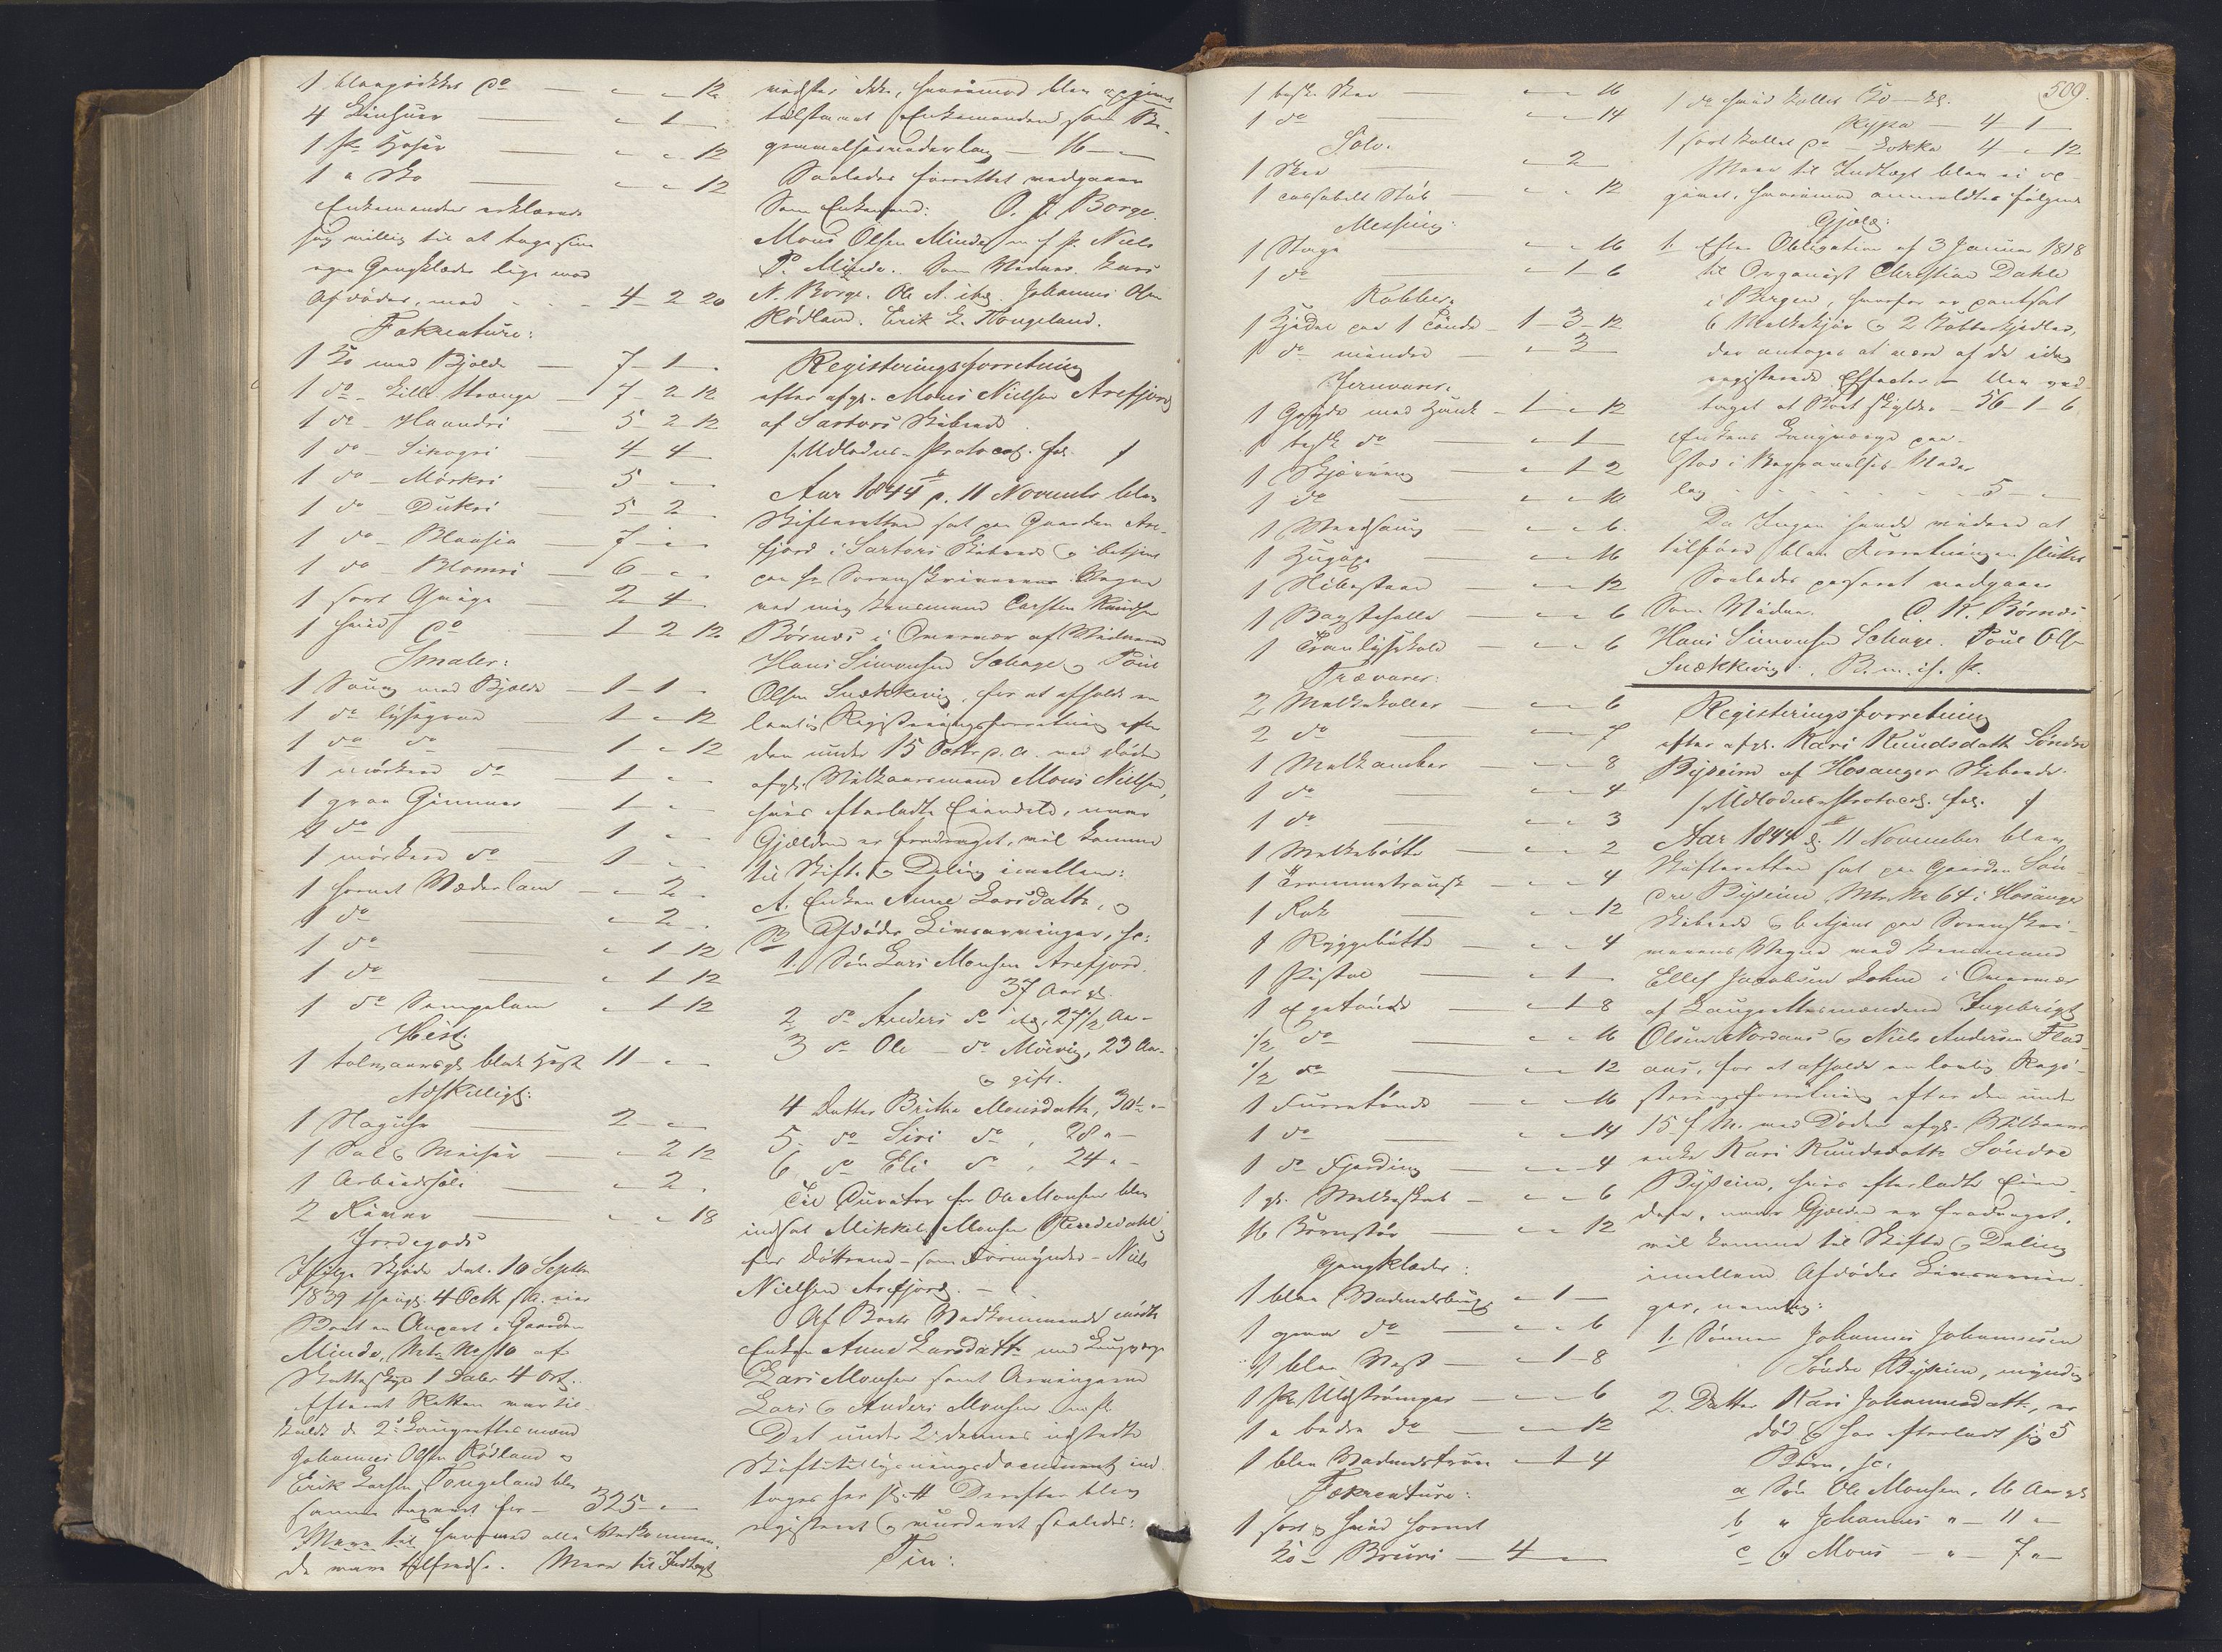 1 blaaprikket do — " - " - 12
4 Linhuer — " - 1 —
1 pr Hoser — " - " - 12
1 " Sko — " - " - 12
Enkemanden erklærede
sig villig til at tage sine
egne Gangklæder lige med
Afdødes, med - - - 4 - 2 - 20
Fækreature:
1 Ko med Bjelde — 7 - 1 —
1 do - Lille — 7 - 2 - 12
1 do - — 5 - 2 - 12
1 do - — 4 - 4
1 do - Mørkri — 5 - "
1 do - Dukri — 5 - 2
1 do - Blaasia — 7 - "
1 do - Blomri — 6 - "
1 sort Qvige — 2 - 4
1 hvid do — 1 - 2 - 12
Smaler:
1 Soug med Bjelde — 1 - 1
1 do lysegraa — 1 - " - 12
1 do do — 1 - " - 12
1 mørkere do — 1 - "
1 graa Gimmer — 1 - "
1 do — 1 - "
1 mørkere do — 1 - "
1 hornet Væderlam — " - 2
1 do — " - 2
1 do — " - 1 - 12
1 do — " - 1 - 12
1 do Søugelam — " - 1 - 12
Hest:
1 tolvaarsgl. blak Hest 11 - "
Adskilligt:
1 Slaguhr — 2 - "
1 Sal — " - 2 - 12
1 Arbeidssæle — " - 2
2 — " - " - 18
Jordegods
Ifølge Skjøde dat. 16 Septbr
1839 thingl. 4 Octb s. A. eier
Boet en Anpart i Gaarden
Minde, Mtr No 10 af
Skatteskyld 1 Daler 4 ort.
Efterat Retten var til-
kaldt de 2de Laugrettesmænd
Johannes Olsen Rødland og
Erik Larsen Tongeland blev
samme taxeret for — 325 - "
hvormed alle Vedkommen-
de vare tilfredse. Mere til Indtægt
vidstes ikke, hvorimod blev opgivet
tilstaaet Enkemanden som Be-
gravelsesvederlag — 16 — "
Saaledes forrettet vedgaaer
Som Enkemand: O. J. Borge.
Mons Olsen Minde m. f. P. Niels
P. Minde. Som Vidner. Lars
N. Borge. Ole A. ibd. Johannes Olsen
Rødland. Erik L. Tongeland.
Registeringsforretning
efter afgl. Mons Nielsen Arefjord
af Sartors Skibrede
/: Udlodns. Protocol. fol. /
Aar 1844 d. 11 Novembr blev
Skifteretten sat paa Gaarden Are-
fjord i Sartors Skibrede & betjent
paa hr Sorenskriverens Vegne
ved mig Lensmand Carsten Knudsen
Børnes i Overvær af Vidnerne
Hans Simonsen Schage & Poul
Olsen Snækkevig, for at afholde en
lovlig Registreringsforretning efter
den under 15 Octbr p. a. ved Døden
afgl. Vilkaarsmand Mons Nielsen,
hvis efterladte Eiendele, naar
Gjælden er fradraget, vil komme
til Skifte & Deling imellem:
A. Enken Anne Larsdatter, og
B. Afdødes Livsarvinger, sc:
1. Søn Lars Monsen Arefjord
37 Aar gl.
2 do Anders do ibd, 27½ Aar -
3 do Ole — do Møvig, 23 Aar -
& gift.
4 Datter Brithe Monsdattr, 30 " -
5. do Siri do , 28 " -
6 do Eli do , 24 " -
Til Curator for Ole Monsen blev
indsat Mikkel Monsen
for Døttrene - som Formynder - Niels
Nielsen Arefjord. -
Af Boets Vedkommende mødte
Enken Anne Larsdattr med Laugværge
Lars Monsen samt Arvingerne
Lars & Anders Monsen
Det under 2 dennes udstedte
Skiftetilsigelsesdocument ind-
tages her sc: # Derefter blev
registeret & vurderet saaledes:
Tin:
509.
1 Skee — " - " - 16
1 do — " - " - 14
Sølv.
1 Skee — " - 2
1 Støb — " - " - 12
Messing:
1 Stage — " - " - 16
1 do — " - 1 - 6
Kobber.
1 Kjedel paa 1 Tønde — 1 - 3 - 12
1 do mindre — " - 3
Jernvarer.
1 Gryde med Hank — 1 - " - 12
1 do — " - 1
1 — " - 1 - 2
1 do — " - " - 10
1 Vedsaug — " - " - 6
1 Hugøxe — " - " - 16
1 Slibesteen — " - " - 12
1 Bagstehelle — " - " - 6
1 Tranlysekole — " - " - 6
Trævarer:
2 Melkekoller — " - " - 6
2 do — " - " - 7
1 Melkambar — " - " - 8
1 do — " - " - 4
1 do — " - " - 3
1 Melkebøtte — " - " - 2
1 — " - " - 4
1 Rok — " - " - 12
1 Bryggebøtte — " - " - 4
1 — " - 1
1 — " - 1 - 8
½ do — " - " - 16
½ do — " - " - 12
1 Furretønde — " - " - 16
1 do — " - " - 14
1 do Fjerding — " - " - 4
1 gl. Melkeskab — " - " - 6
16 — " - " - 12
Gangklæder:
1 blaa — " - 1 —
1 do — " - " - 6
1 blaa Vest — " - 1 - 8
1 Pr. Uldstrømper — " - " - 6
1 " bedre do — " - " - 12
1 blaa Vadmelstrøie — " - 1 - 4
Fækreature:
1 sort & hvid hornet
Ko - Bruni — 4 - "
1 do hvid kollet Ko —
— 4 - 1
1 sort kollet do - Dokka 4 - " - 12
Mere til Indtægt blev ei op-
givet, hvorimod anmeldtes følgende
Gjæld:
1. Efter Obligation af 3 Januar 1818
til Organist Christian Dahle
i Bergen, hvorfor er pantsat
6 Melkekjør & 2 Kobberkjedler,
der antages at være af de idag
registrerede Effecter — blev ved-
taget at Boet skylder — 56 - 1 - 6
Enkens Laugværge paa-
stod i Begravelses Veder-
lag - - - - - - - 5 - "
Da Ingen havde videre at
tilføre blev Forretningen sluttet
Saaledes passeret vedgaaer
Som Vidner. C. K. Børnes
Hans Simonsen Schage. Poul Olsen
Snækkevig. B. m. if. P.
Registeringsforretning
efter afgl. Kari Knudsdattr Søndre
Byseim af Hosanger Skibrede.
/: Udlodnsprotocol. fol. /
Aar 1844 d. 11 November blev
Skifteretten sat paa Gaarden Søn-
dre Byseim Mtr. No 64 i Hosanger
Skibrede & betjent paa Sorenskri-
verens Vegne ved Lensmand
Ellef Jacobsen Lohne i Overvær
af Laugrettesmændene Ingebrigt
Olsen Nordaas & Niels Andersen
for at afholde en lovlig Regi-
streringsforretning efter den under
15 f. M. ved Døden afgl. Vilkaars-
enke Kari Knudsdattr Søndre
Byseim, hvis efterladte Eien-
dele, naar Gjælden er fradraget,
vil komme til Skifte & Deling
imellem Afdødes Livsarvin-
ger, nemlig:
1. Sønnen Johannes Johannesen
Søndre Bysein, myndig
2. Datter Kari Johannesdattr, er
død & har efterladt sig 5
Børn, sc:
a Søn Ole Monsen, 16 Aar gl
b " Johannes " — 11 "
c " Mons — " — 7 "